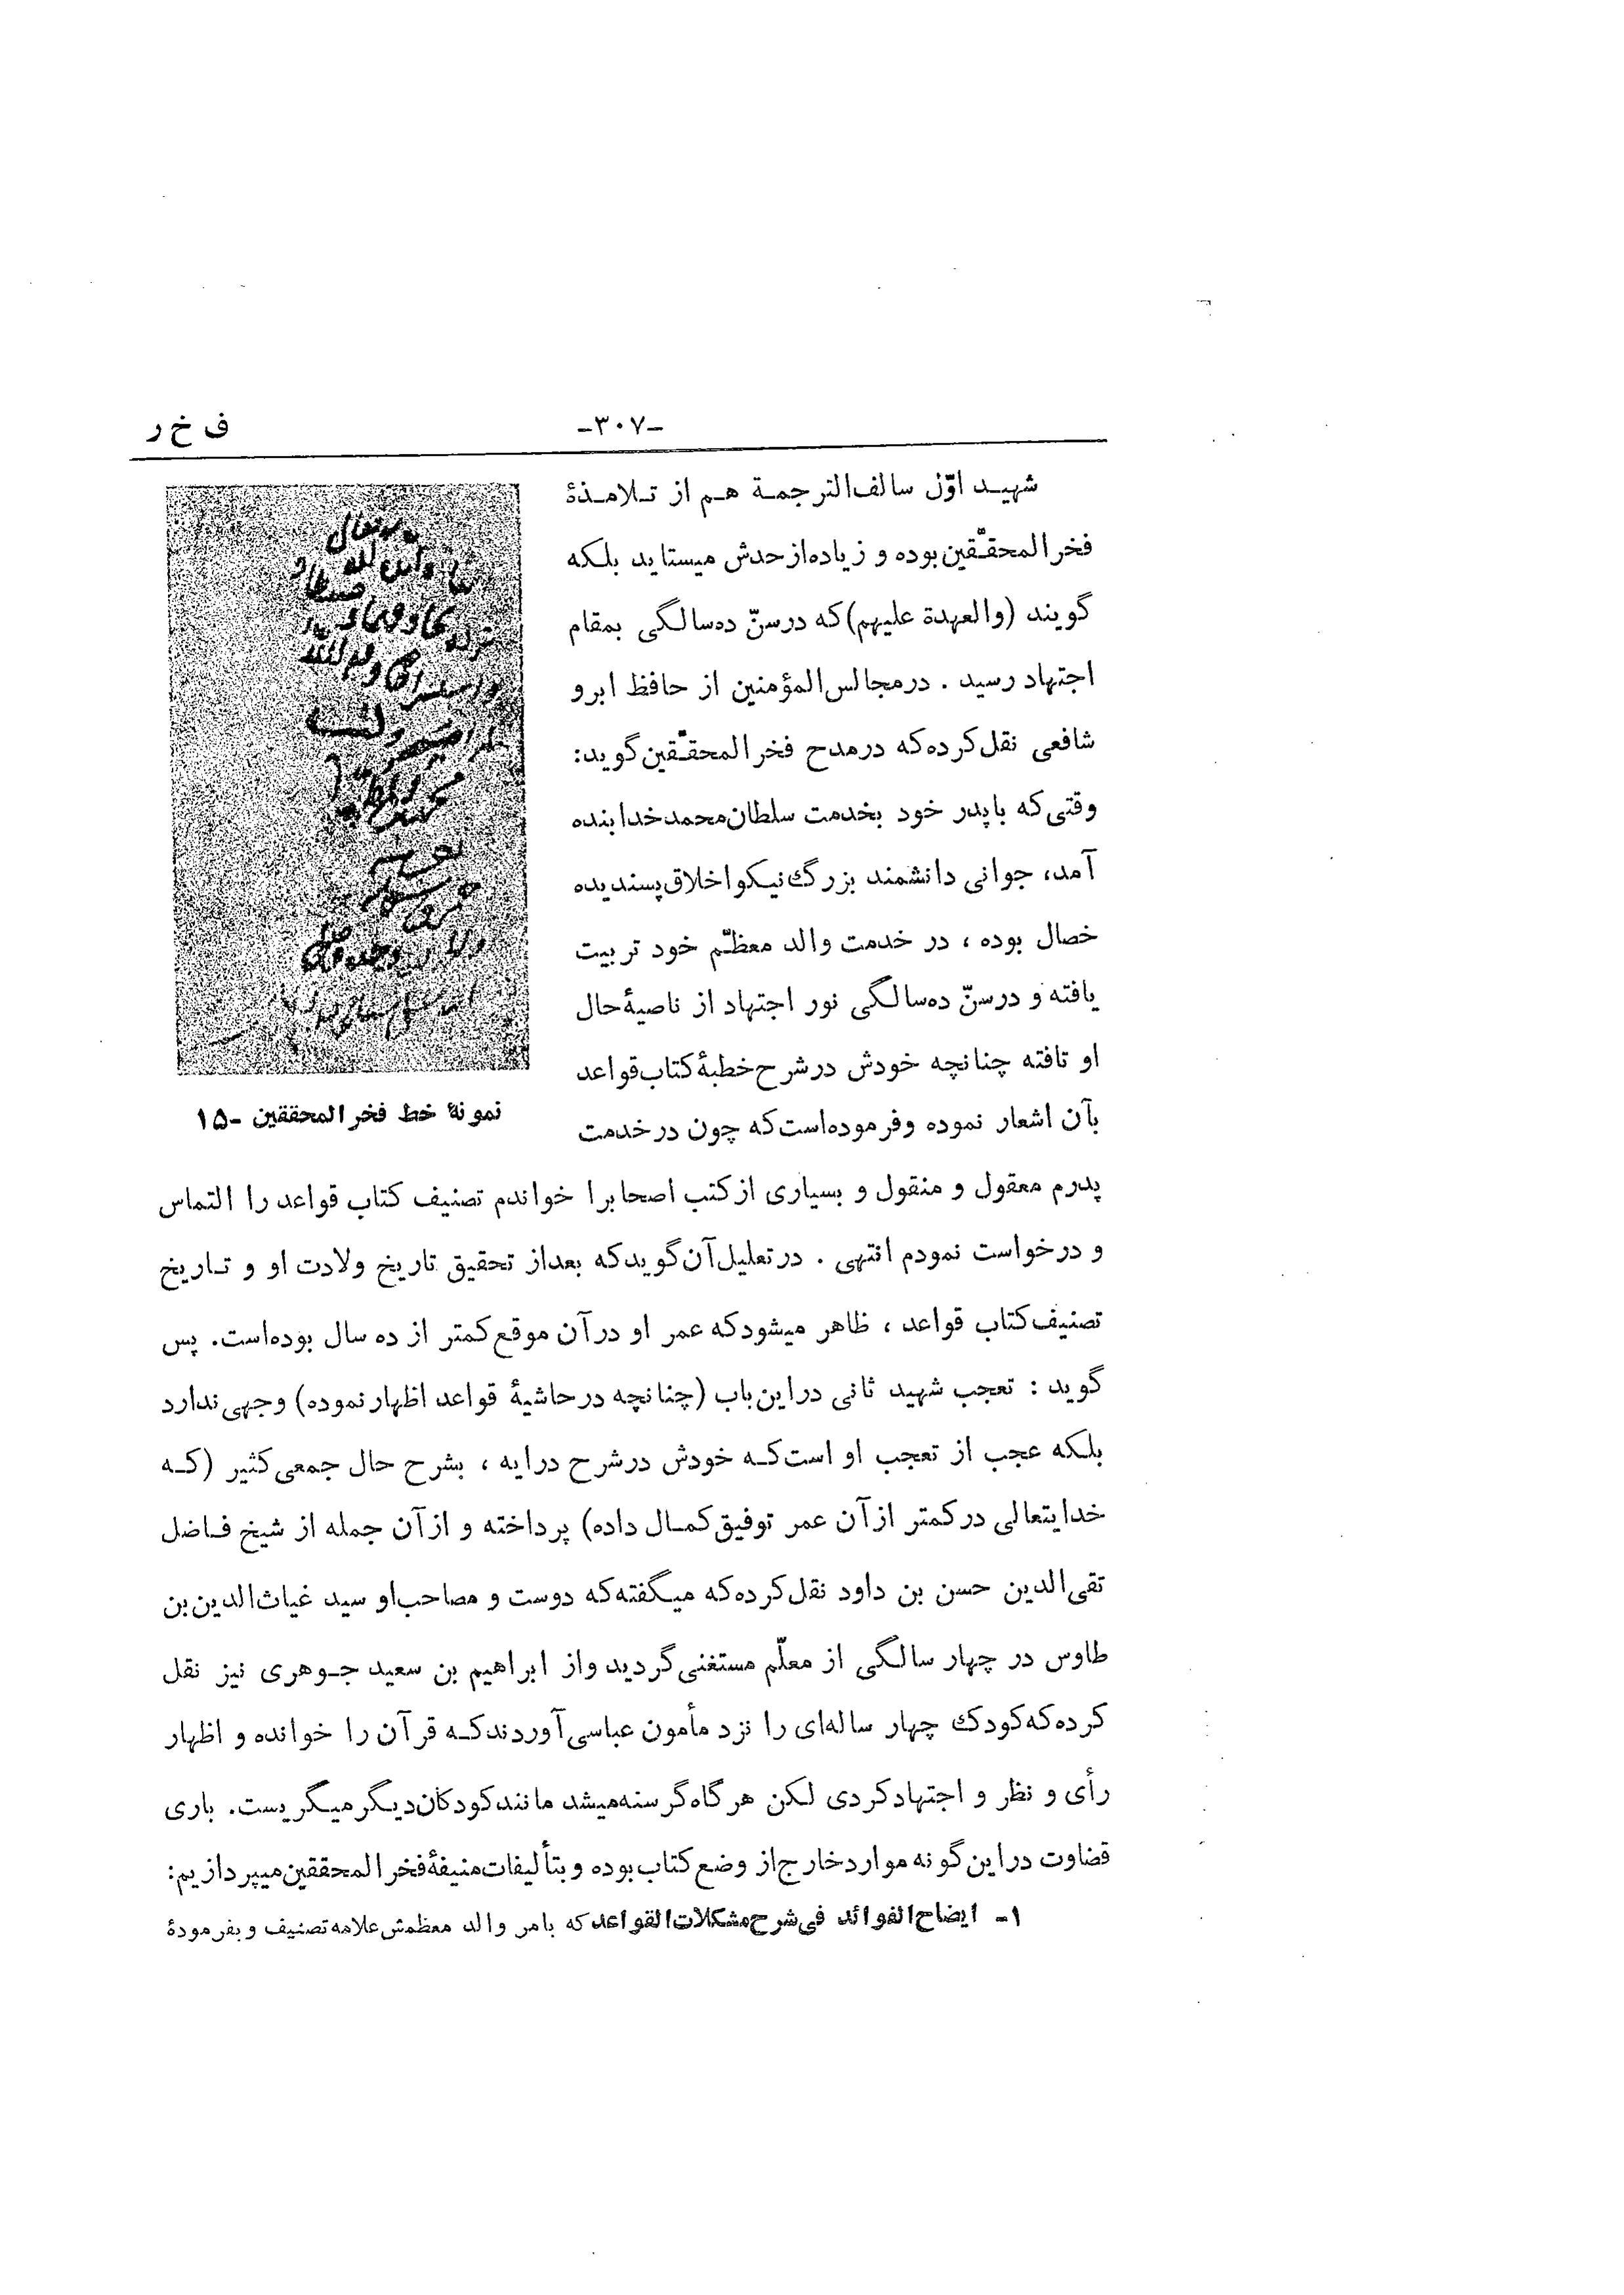 ف خ ر
-۳۰۷-
شهیـد اوّل سالف‌الترجمـة هـم از تـلامـذهٔ
فخرالمحقّقین بوده و زیاده‌ازحدش میستاید بلکه
گویند (والعهدة علیهم) که درسنّ ده‌سالگی بمقام
اجتهاد رسید . درمجالس‌المؤمنین از حافظ ابرو
شافعی نقل‌کرده‌که درمدح فخرالمحقّقین گوید:
وقتی‌که باپدر خود بخدمت سلطان‌محمدخدابنده
آمد، جوانی دانشمند بزرگ نیکو اخلاق پسندیده
خصال بوده ، در خدمت والد معظّم خود تربیت
یافته و درسنّ ده‌سالگی نور اجتهاد از ناصیهٔ حال
او تافته چنانچه خودش درشرح خطبهٔ کتاب قواعد
بآن اشعار نموده وفرموده‌است‌که چون درخدمت
نمونهٔ خط فخرالمحققین -۱۵
پدرم معقول و منقول و بسیاری ازکتب اصحابرا خواندم تصنیف کتاب قواعد را التماس
و درخواست نمودم انتهی . درتعلیل‌آن گوید که بعداز تحقیق تاریخ ولادت او و تـاریخ
تصنیف‌کتاب قواعد ، ظاهر میشودکه عمر او درآن موقع‌کمتر از ده سال بوده‌است. پس
گوید : تعجب شهید ثانی دراین‌باب (چنانچه درحاشیهٔ قواعد اظهار نموده) وجهی ندارد
بلکه عجب از تعجب او است‌کـه خودش درشرح درایه ، بشرح حال جمعی‌کثیر (کـه
خدایتعالی درکمتر ازآن عمر توفیق‌کمـال داده) پرداخته و ازآن جمله از شیخ فـاضل
تقی‌الدین حسن بن داود نقل‌کرده‌که میگفته‌که دوست و مصاحب‌او سید غیاث‌الدین‌بن
طاوس در چهار سالگی از معلّم مستغنی‌گردید واز ابراهیم بن سعید جـوهری نیز نقل
کرده‌که‌کودک چهار ساله‌ای را نزد مأمون عباسی‌آوردندکـه قرآن را خوانده و اظهار
رأی و نظر و اجتهادکردی لکن هرگاه‌گرسنه‌میشد مانندکودکان‌دیگرمیگریست. باری
قضاوت دراین‌گونه مواردخارج‌از وضع‌کتاب‌بوده و بتألیفات‌منیفهٔ‌فخرالمحققین‌میپردازیم:
۱- ایضاح‌الفوائد فی‌شرح‌مشکلات‌القواعدکه بامر والد معظمش‌علامه‌تصنیف و بفرمودهٔ